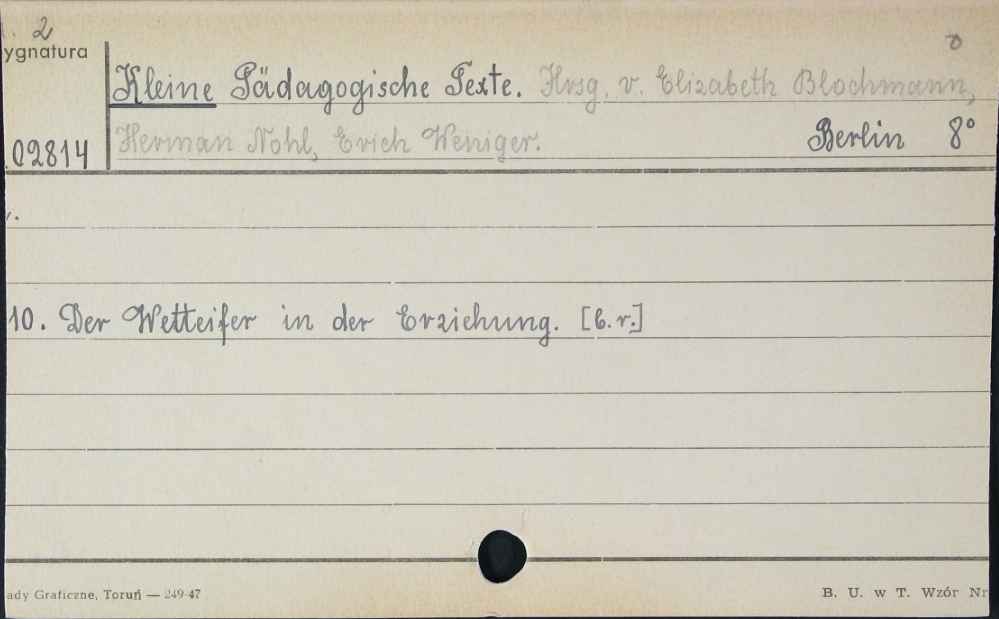 . 2
ygnatura
Kleine Pädagogische Texte. Hrsg. v. Elizabeth Blochmann,
02814 Herman Nohl, Erich Weniger. Berlin 8°
10. Der Wetteifer in der Erziehung. [b.r.]
ady Graficzne, Toruń — 249-47 B. U. w T. Wzór Nr